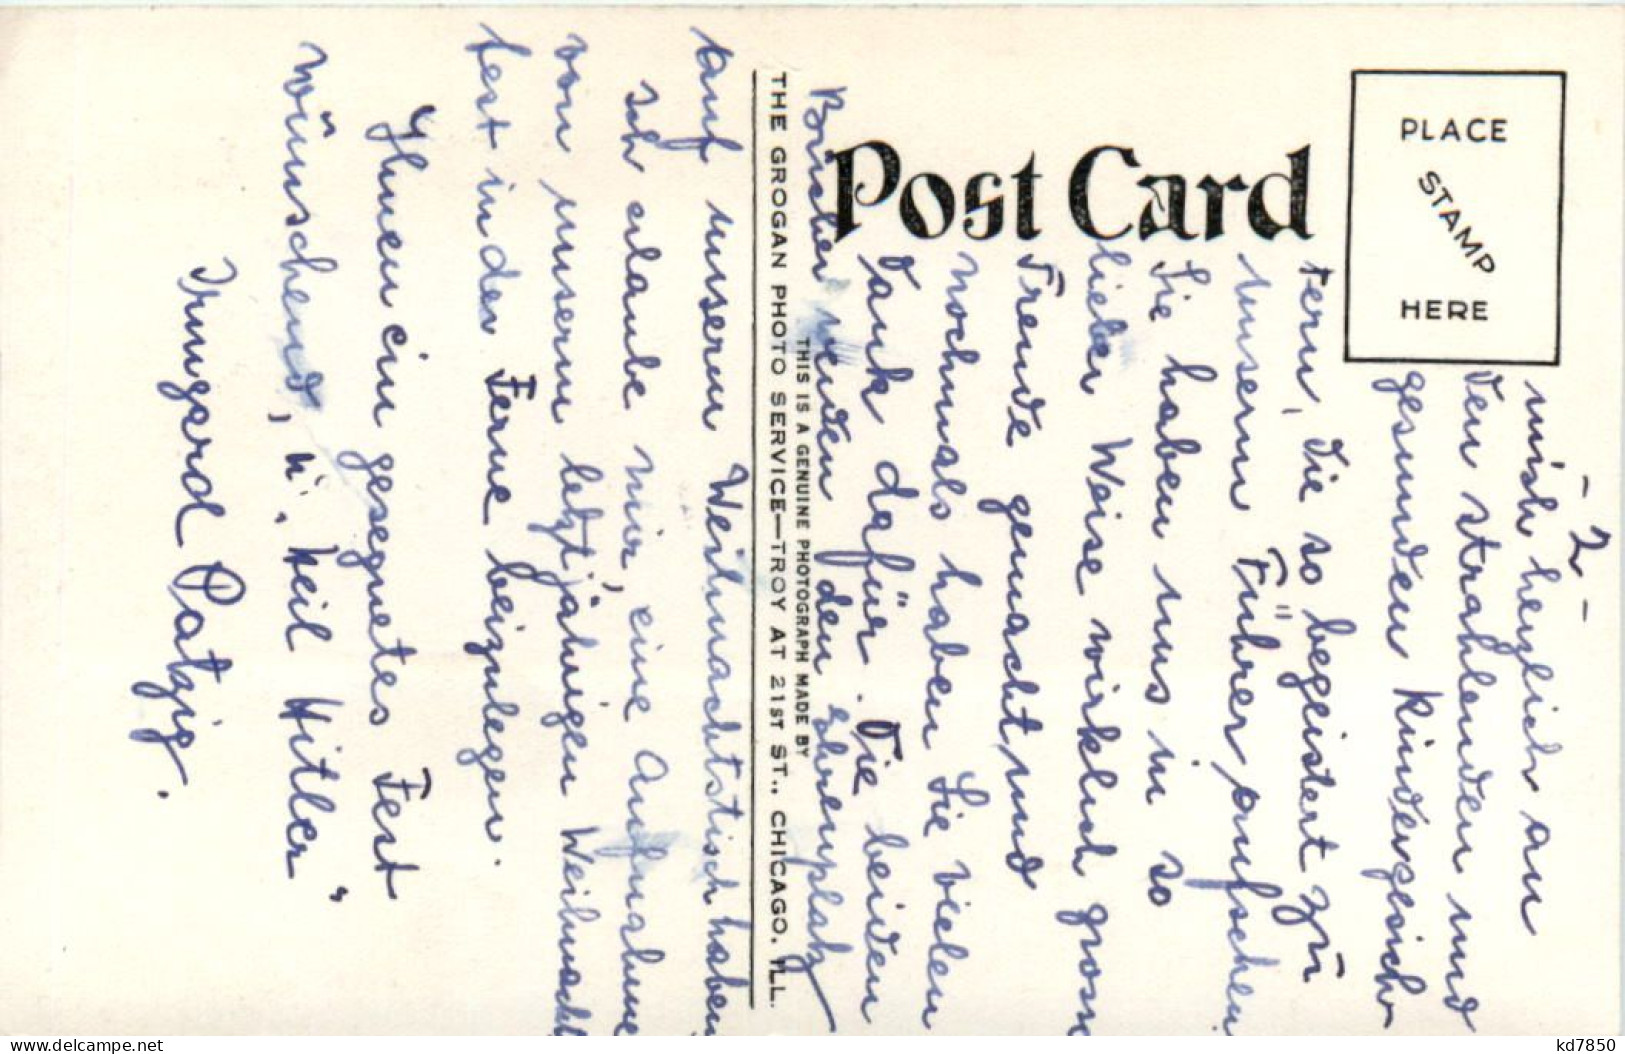 Post Card
PLACE
STAMP
HERE
THIS IS A GENUINE PHOTOGRAPH MADE BY
THE GROGAN PHOTO SERVICE—TROY AT 21ST ST., CHICAGO, ILL.
- 2 -
mich herzlich an
den strahlenden und
gesunden Kindergesich
tern, die so begeistert zu
unserm Führer aufschen
Sie haben uns in so
lieber Weise wirklich gross
Freude gemacht und
nochmals haben Sie vielen
Dank dafür. Die beiden
Bücher werden den Ehrenplatz
auf unserm Weihnachtstisch haben
Ich erlaube mir, eine Aufnahme
von unserm letztjährigen Weihnacht
fest in der Ferne beizulegen.
Ihnen ein gesegnetes Fest
wünschend, u. "Heil Hitler"
Irmgard Patzig.
kd7850
www.delcampe.net